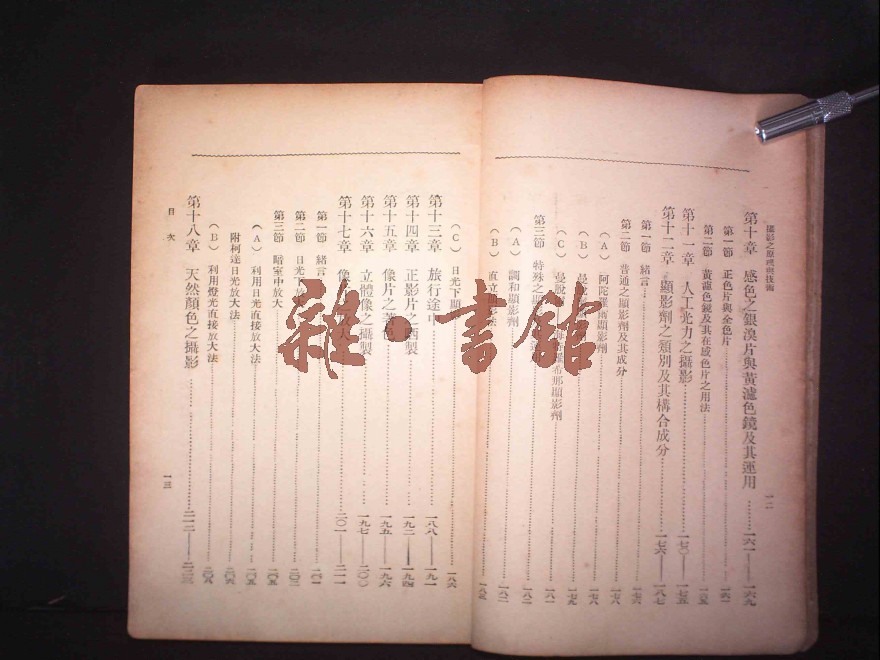 攝影之原理與技術
一二
第十章 感色之銀溴片與黃濾色鏡及其運用……一六一——一六九
第一節 正色片與全色片……一六一
第二節 黃濾色鏡及其在感色片之用法……一六五
第十一章 人工光力之攝影……一七〇——一七五
第十二章 顯影劑之類別及其構合成分……一七六——一八七
第一節 緒言……一七六
第二節 普通之顯影劑及其成分……一七八
（A） 阿陀羅爾顯影劑……一七八
（B） 曼……一七九
（C） 曼脫……那顯影劑……一八一
第三節 特殊之顯……一八一
（A） 調和顯影劑……一八二
（B） 直立……法……一八五
（C） 日光下顯……一八六
第十三章 旅行途中……一八八——一九一
第十四章 正影片之……製……一九二——一九四
第十五章 像片之著色……一九五——一九六
第十六章 立體像之攝製……一九七——二〇〇
第十七章 像……大……二〇一——二一一
第一節 緒言……二〇一
第二節 日光下放……二〇三
第三節 暗室中放大……二〇五
（A） 利用日光直接放大法……二〇五
附柯達日光放大法……二〇六
（B） 利用燈光直接放大法……二〇八
第十八章 天然顏色之攝影……二一二——二二三
目次
一三
雜·書館